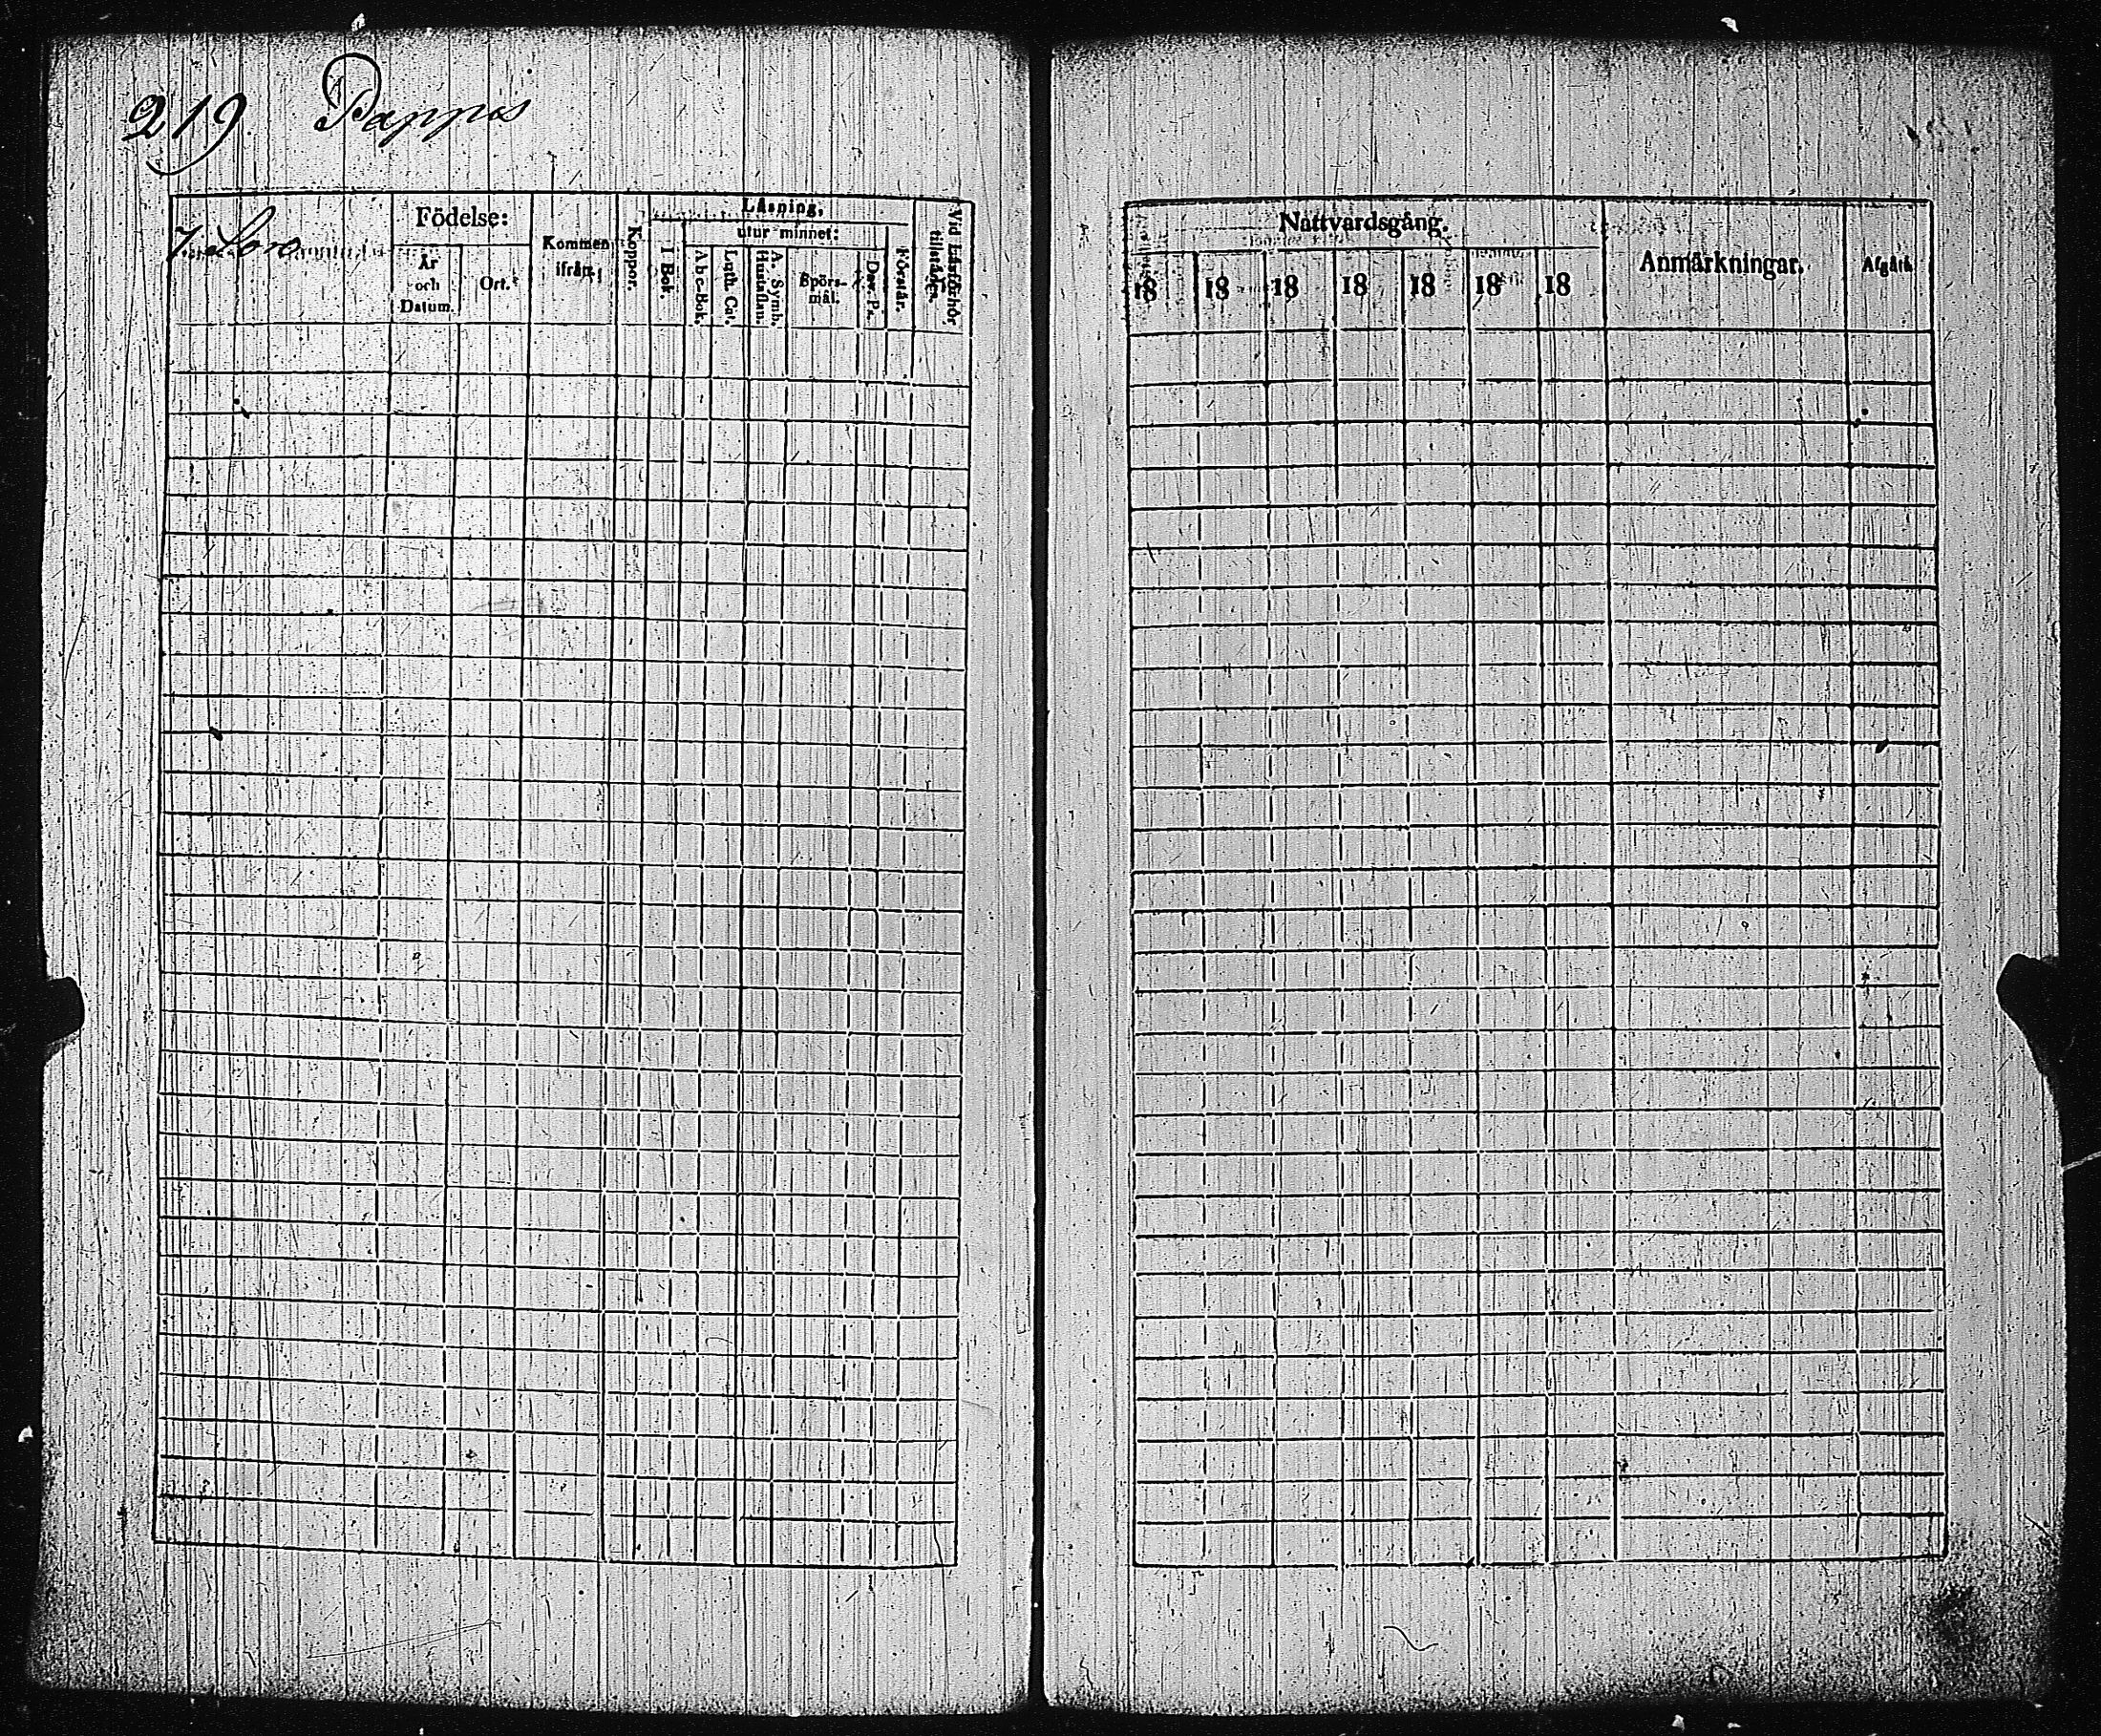 219 Pappos
7. Soro
Födelse:
År
och
Datum.
Ort.
Kommen
ifrån.
Koppor.
Läsning,
I Bok.
utur minnet:
A b c-Bok.
Luth. Cat.
A. Symb.
Hustaflan.
Spörs-
mål.
Dav. Ps.
Förstår.
Vid Läsförhör
tillstädes.
Nattvardsgång.
18 18 18 18 18 18 18
Anmärkningar.
Afgått.